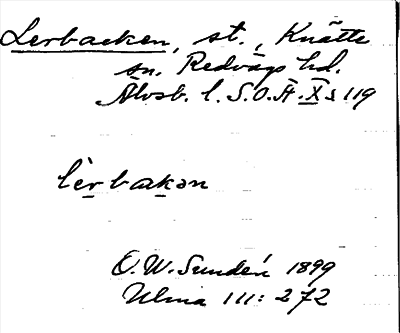 Lerbacken, st., Knätte
sn. Redvägs hd.
Älvsb. l. S.O.Ä. X s 119
lèr backən
O.W. Sundén 1899
Ulma 111: 272